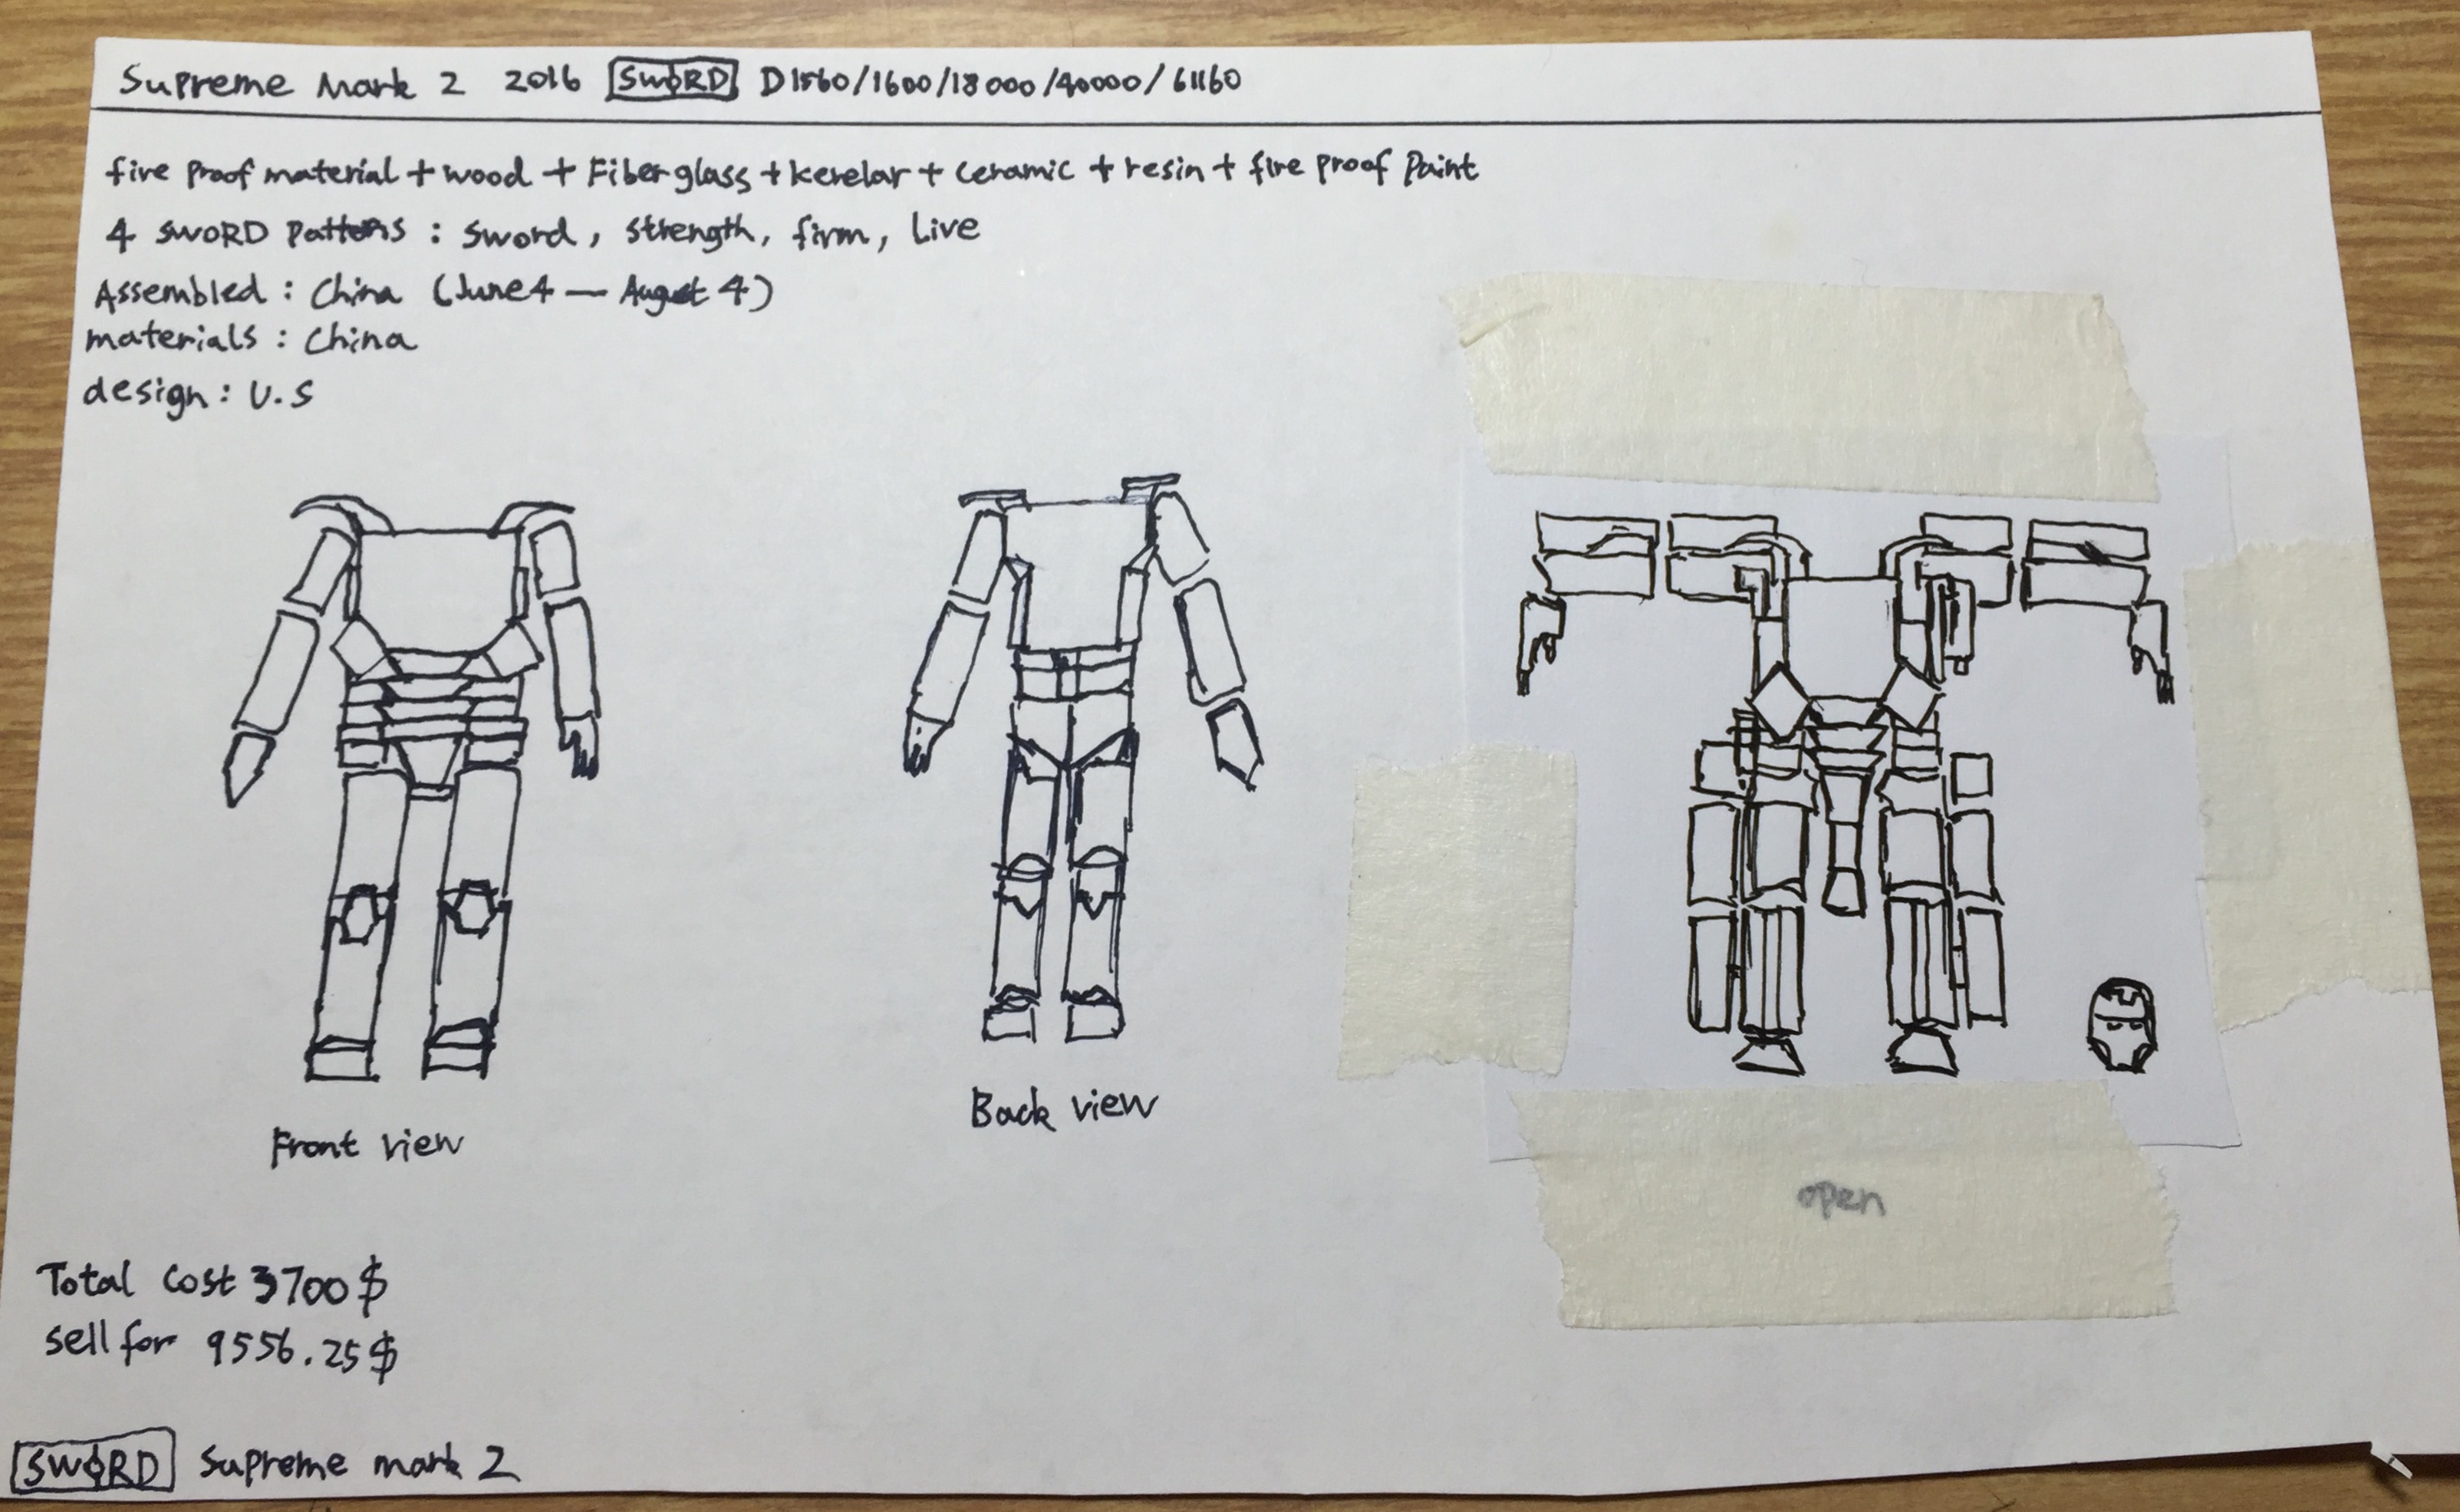 Supreme Mark 2 2016 SWORD D1560/1600/18000/40000/61160
fire Proof material + wood + Fiberglass + kevelar + ceramic + resin + fire proof Paint
4 SWORD Patterns : Sword, strength, firm, Live
Assembled : China (June4 — August 4)
materials : China
design : U.S
Front view
Back view
open
Total Cost 3700$
sell for 9556.25$
SWORD Supreme mark 2